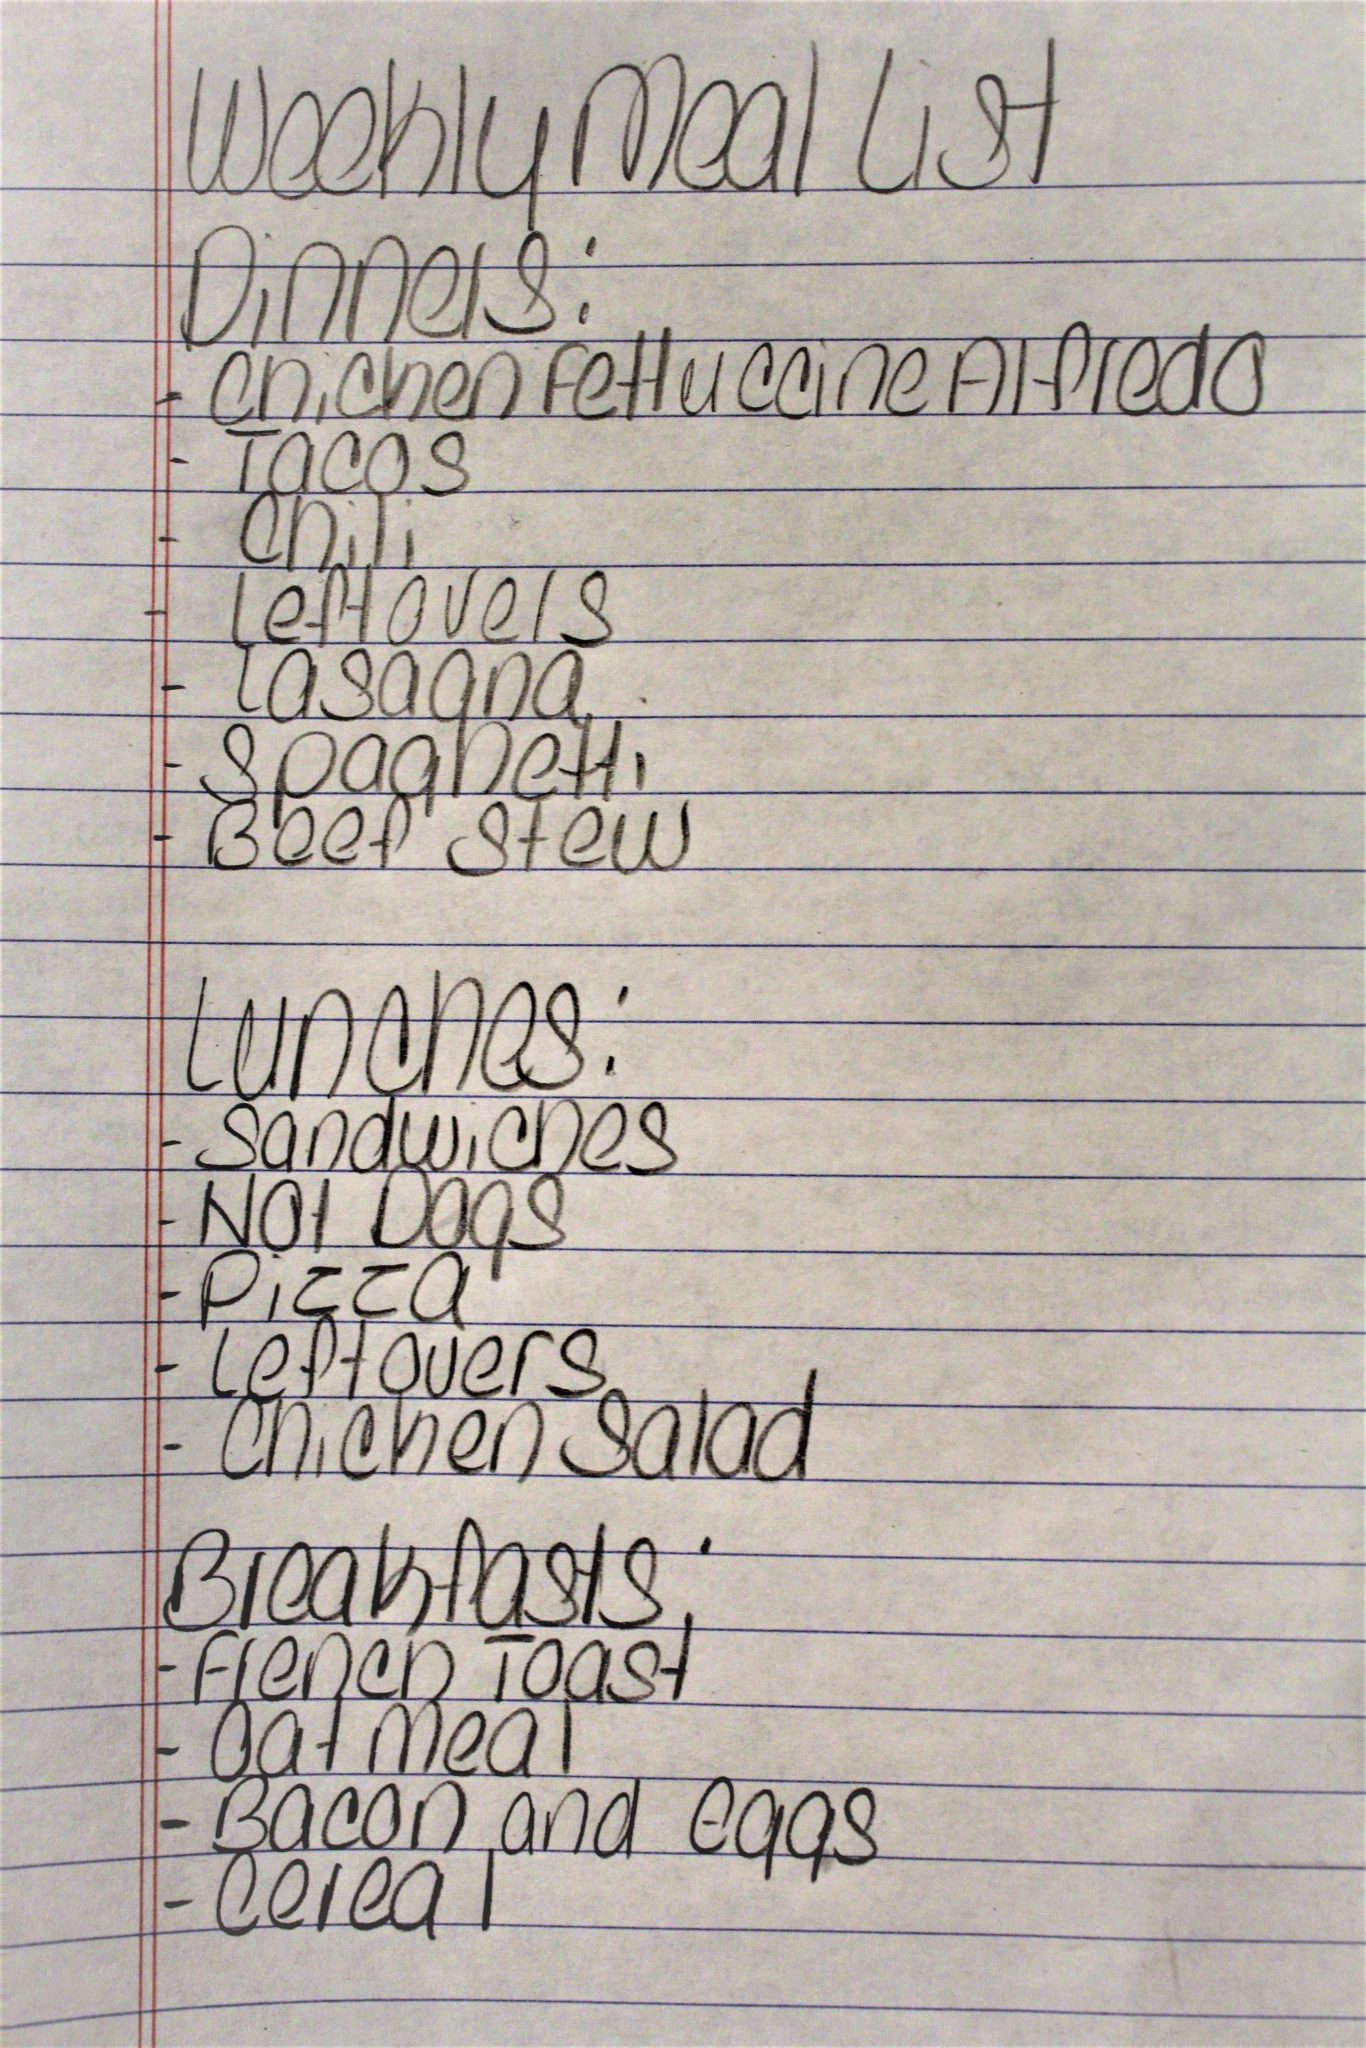 Weekly Meal List
Dinners:
- Chicken Fettuccine Alfredo
- Tacos
- Chili
- Leftovers
- Lasagna
- Spaghetti
- Beef Stew
Lunches:
- Sandwiches
- Hot Dogs
- Pizza
- Leftovers
- Chicken Salad
Breakfasts:
- French Toast
- Oatmeal
- Bacon and Eggs
- Cereal